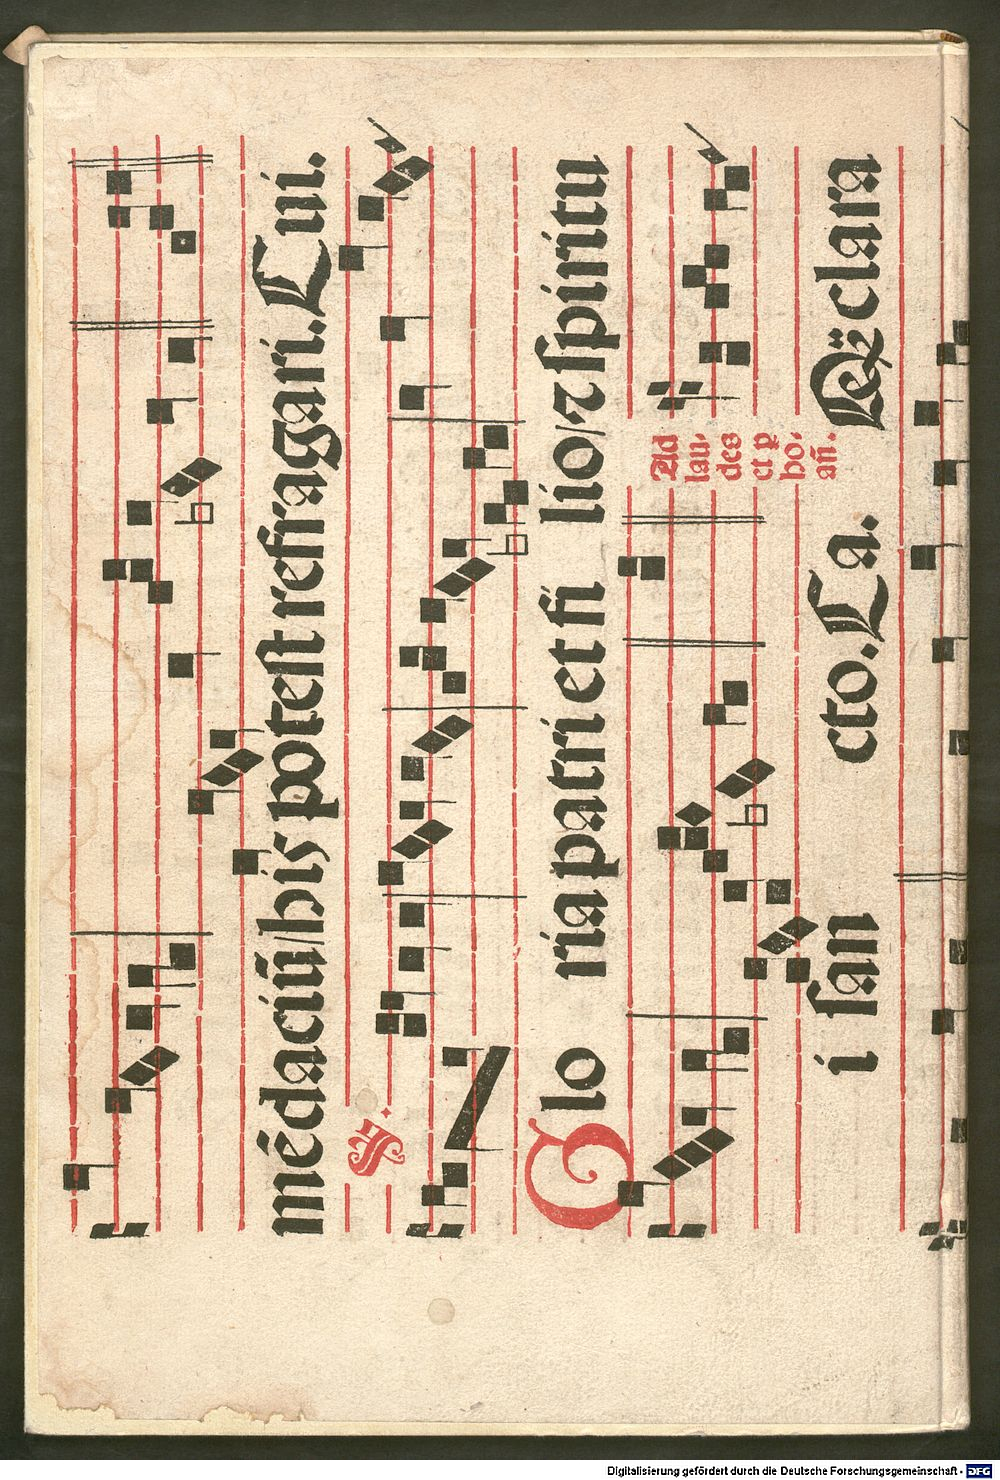 mēdaciū/his potest refragari. Cui.
℣.
Glo ria patri et fi lio/⁊ spiritu
Ad
lau⸗
des
et p
ho⸗
añ.
i san cto. Ca. Q̈ clara
Digitalisierung gefördert durch die Deutsche Forschungsgemeinschaft - DFG